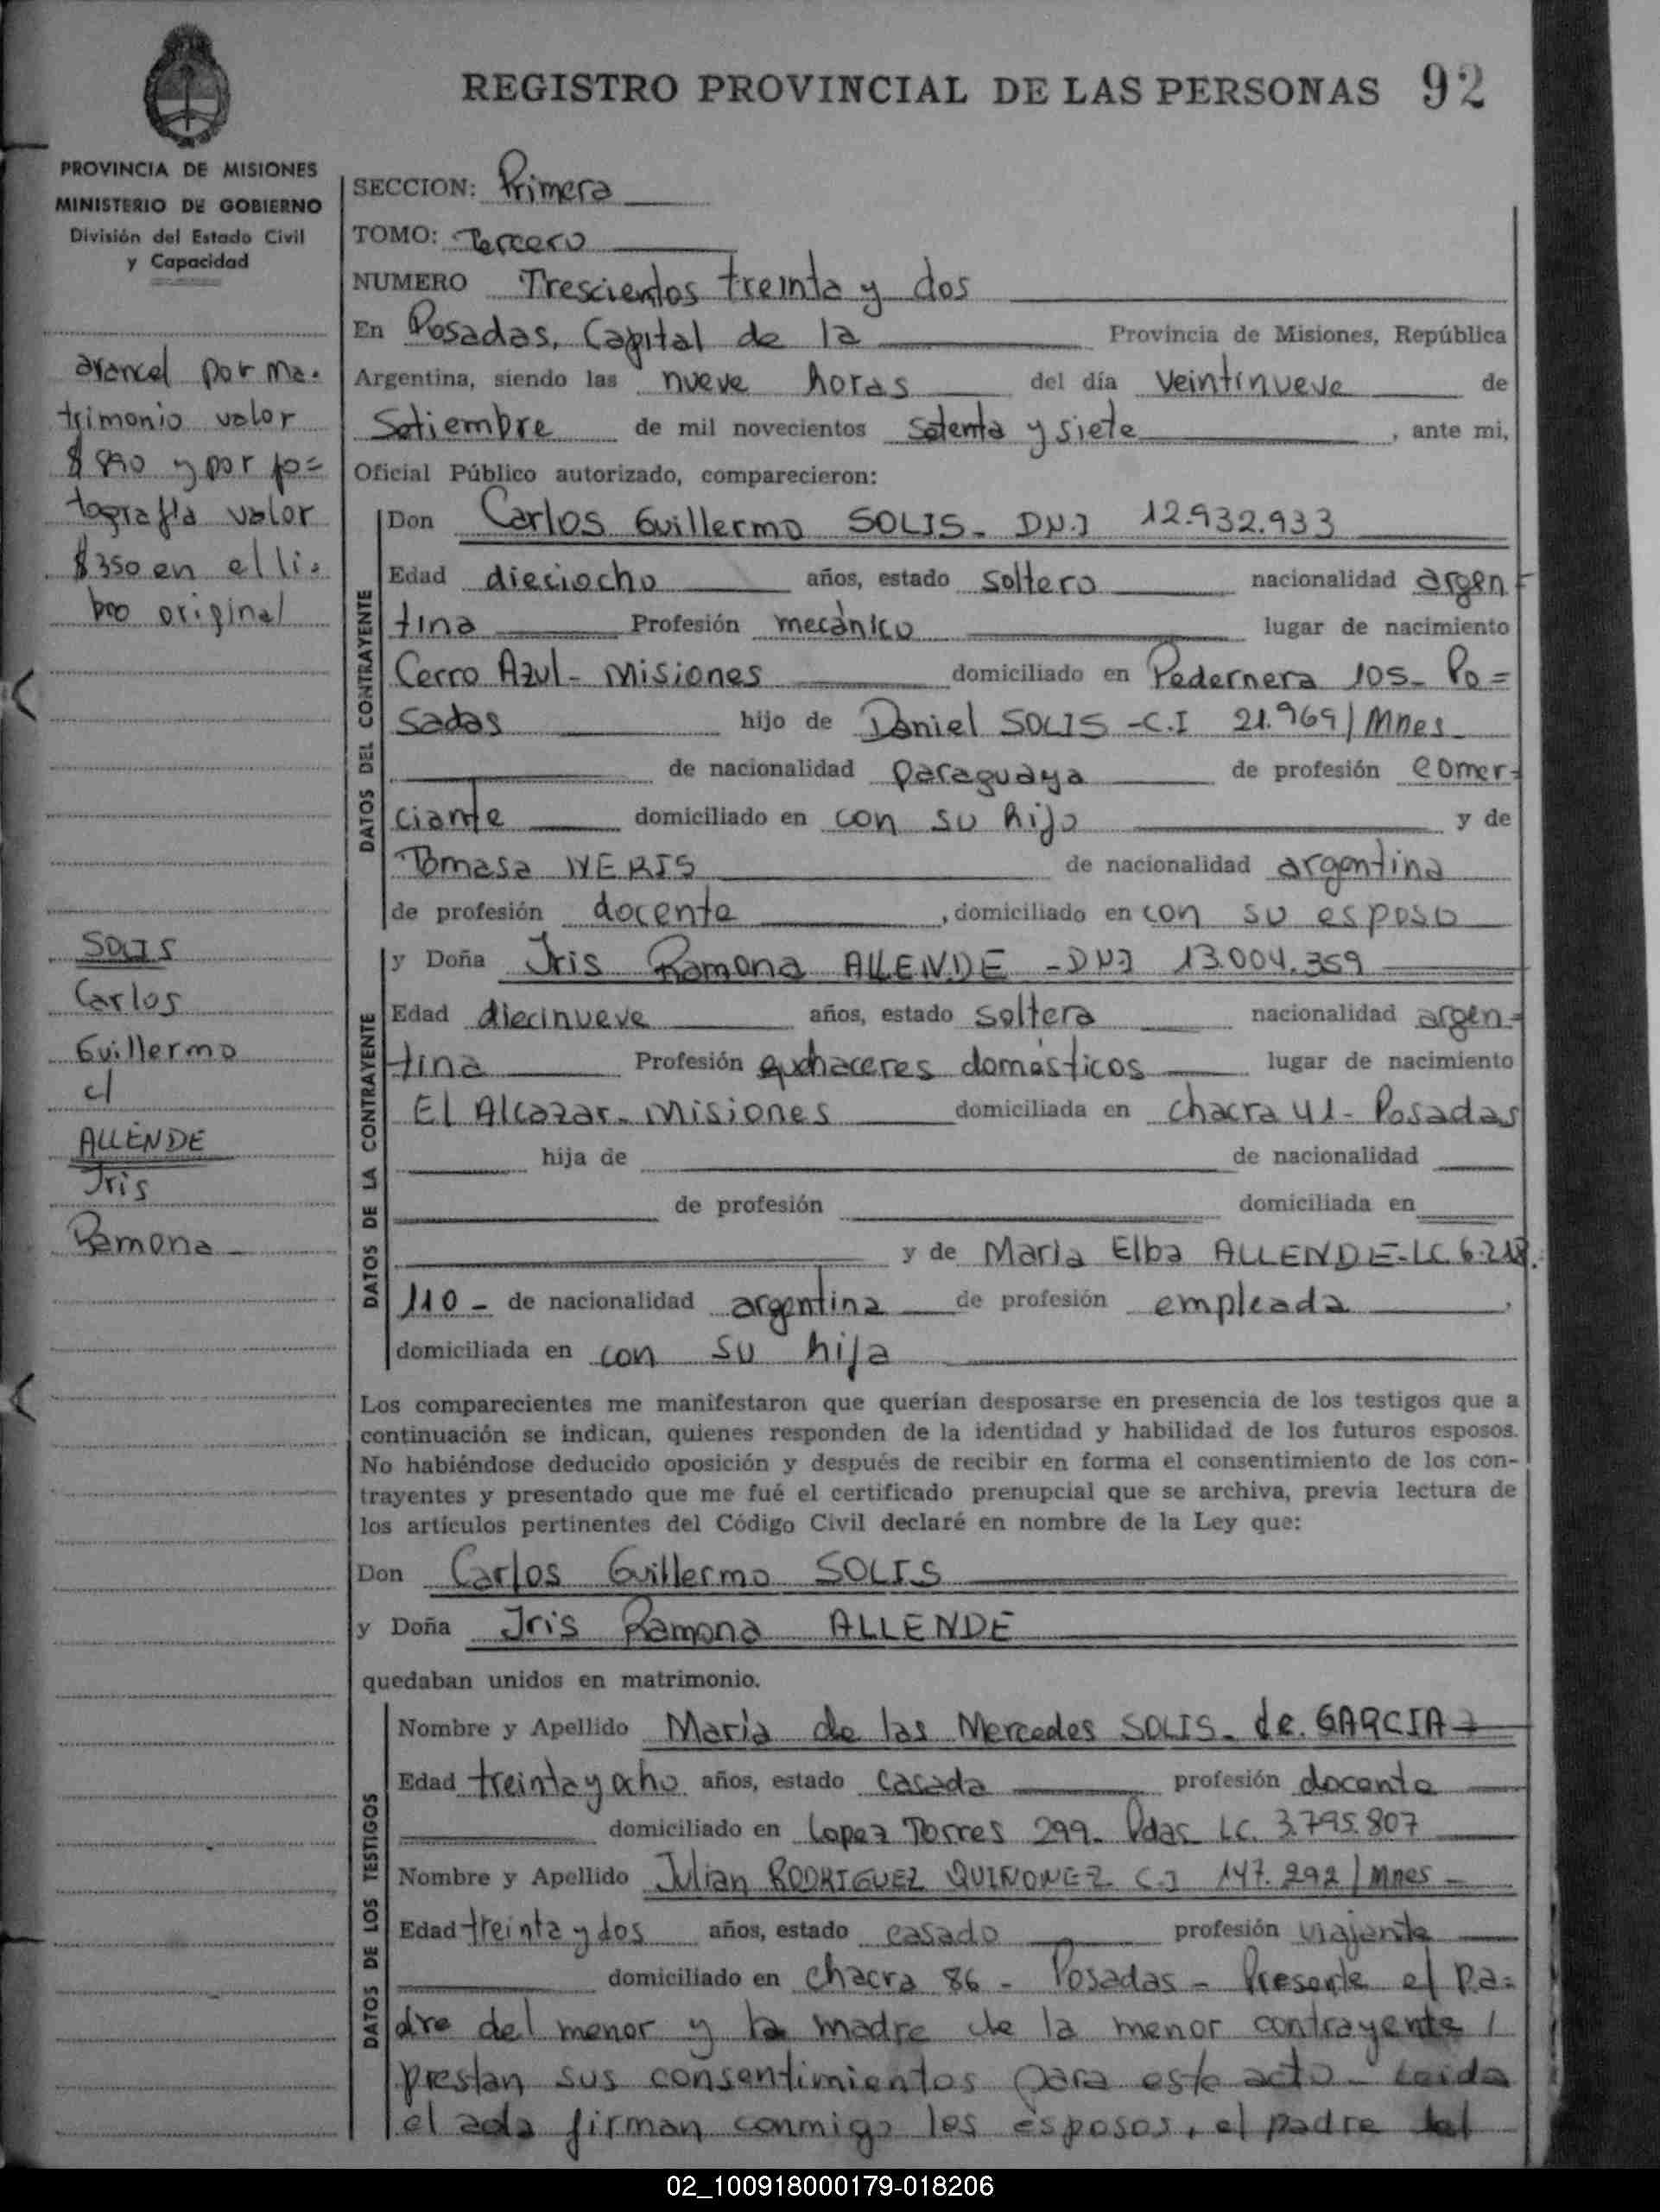 REGISTRO PROVINCIAL DE LAS PERSONAS 92
PROVINCIA DE MISIONES
MINISTERIO DE GOBIERNO
División del Estado Civil
y Capacidad
arancel por ma-
trimonio valor
$ y por fo=
tografía valor
$350 en el li=
bro original
SOLIS
Carlos
Guillermo
c/
ALLENDE
Iris
Ramona
SECCION: Primera
TOMO: Tercero
NUMERO Trescientos treinta y dos
En Posadas, Capital de la Provincia de Misiones, República
Argentina, siendo las nueve horas del día veintinueve de
Setiembre de mil novecientos setenta y siete, ante mi,
Oficial Público autorizado, comparecieron:
DATOS DEL CONTRAYENTE
Don Carlos Guillermo SOLIS - DNI 12.932.933
Edad dieciocho años, estado soltero nacionalidad argen-
tina Profesión mecánico lugar de nacimiento
Cerro Azul - Misiones domiciliado en Pedernera 105 - Po=
sadas hijo de Daniel SOLIS - C.I 21.969/Mnes
de nacionalidad paraguaya de profesión comer-
ciante domiciliado en con su hijo y de
Tomasa NERIS de nacionalidad argentina
de profesión docente, domiciliado en con su esposo
DATOS DE LA CONTRAYENTE
y Doña Iris Ramona ALLENDE - DNI 13.004.359
Edad diecinueve años, estado soltera nacionalidad argen-
tina Profesión quehaceres domésticos lugar de nacimiento
El Alcazar - Misiones domiciliada en chacra 41 - Posadas
hija de de nacionalidad
de profesión domiciliada en
y de Maria Elba ALLENDE - LC 6.218.
110 - de nacionalidad argentina de profesión empleada
domiciliada en con su hija
Los comparecientes me manifestaron que querían desposarse en presencia de los testigos que a
continuación se indican, quienes responden de la identidad y habilidad de los futuros esposos.
No habiéndose deducido oposición y después de recibir en forma el consentimiento de los con-
trayentes y presentado que me fué el certificado prenupcial que se archiva, previa lectura de
los artículos pertinentes del Código Civil declaré en nombre de la Ley que:
Don Carlos Guillermo SOLIS
y Doña Iris Ramona ALLENDE
quedaban unidos en matrimonio.
DATOS DE LOS TESTIGOS
Nombre y Apellido María de las Mercedes SOLIS - de GARCIA
Edad treinta y ocho años, estado casada profesión docente
domiciliado en Lopez Torres 299 - Pdas LC. 3.795.807
Nombre y Apellido Julian RODRIGUEZ QUIÑONEZ C.I 147.292/Mnes -
Edad treinta y dos años, estado casado profesión viajante
domiciliado en chacra 86 - Posadas - Presente el pa=
dre del menor y la madre de la menor contrayente /
prestan sus consentimientos para este acto - Leida
el acta firman conmigo los esposos, el padre del
02_100918000179-018206